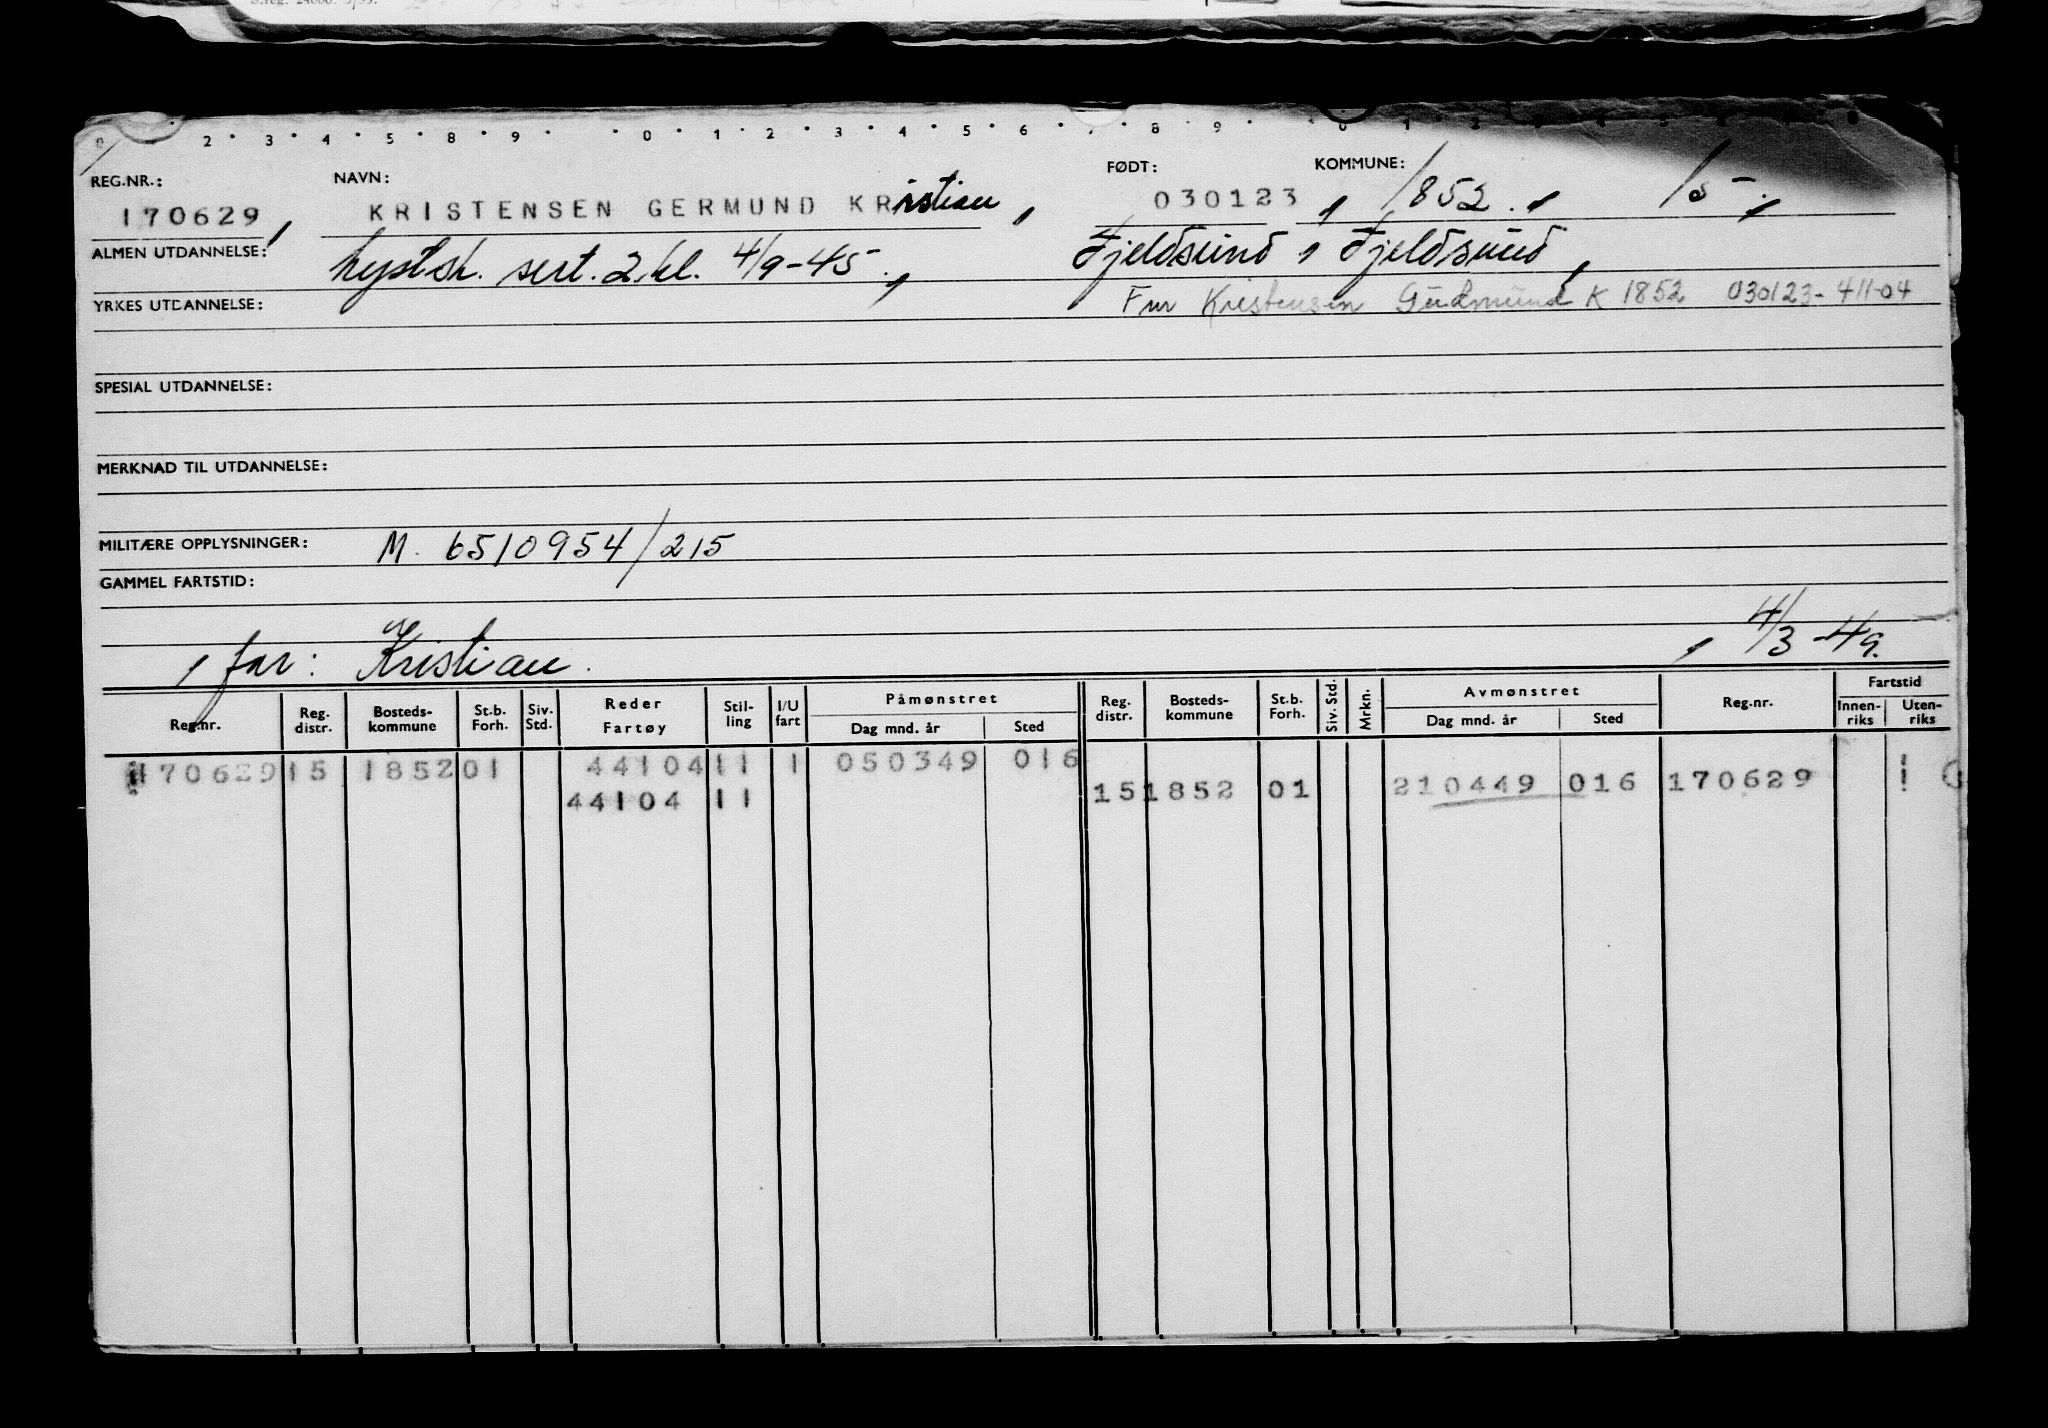 2 · 3 · 4 · 5 · 8 · 9 · · 0 · 1 · 2 · 3 · 4 · 5 · 6 · · 8 · 9 · 0 · 1 · 2
REG.NR.: NAVN: FØDT: KOMMUNE:
170629, KRISTENSEN GERMUND KRistian, 030123, 1852., 15-,
ALMEN UTDANNELSE: kystsk. sert. 2. kl. 4/9-45., Fjeldsund, Fjeldsund,
YRKES UTDANNELSE: Kristensen Gudmund K 1852 030123- 411-04
SPESIAL UTDANNELSE:
MERKNAD TIL UTDANNELSE:
MILITÆRE OPPLYSNINGER: M. 6510954/215
GAMMEL FARTSTID:
, far: Kristian. , 4/3-49.
Reg.nr. Reg. distr. Bosteds-kommune St.b. Forh. Siv. Std. Reder Fartøy Stil-ling I/U fart Påmønstret Dag mnd. år Sted Reg. distr. Bosteds-kommune St.b. Forh. Siv. Std. Mrkn. Avmønstret Dag mnd. år Sted Reg.nr. Fartstid Innen-riks Uten-riks
170629 15 1852 01 44104 11 1 050349 016
44104 11 15 1852 01 210449 016 170629 1